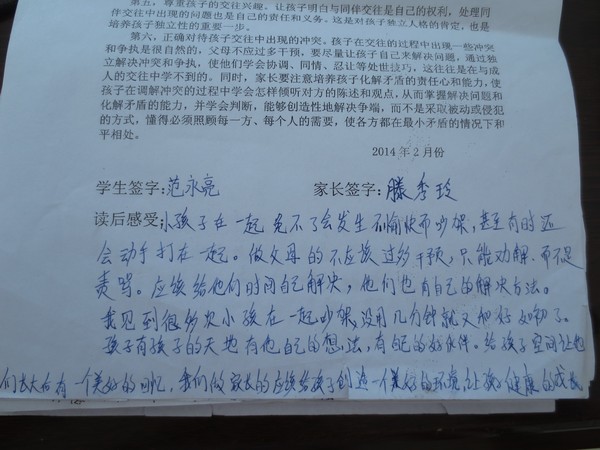 第五，尊重孩子的交往兴趣。让孩子明白与同伴交往是自己的权利，处理同
伴交往中出现的问题也是自己的责任和义务。这是对孩子独立人格的肯定，也是
培养孩子独立性的重要一步。
第六，正确对待孩子交往中出现的冲突。孩子在交往的过程中出现一些冲突
和争执是很自然的，父母不应过多干预，要尽量让孩子自己来解决问题，通过独
立解决冲突和争执，使他们学会协调、同情、忍让等处世技巧，这往往是在与成
人的交往中学不到的。同时，家长要注意培养孩子化解矛盾的责任心和能力，使
孩子在调解冲突的过程中学会怎样倾听对方的陈述和观点，从而掌握解决问题和
化解矛盾的能力，并学会判断，能够创造性地解决争端，而不是采取被动或侵犯
的方式，懂得必须照顾每一方、每个人的需要，使各方都在最小矛盾的情况下和
平相处。
2014年2月份
学生签字:范永亮 家长签字:滕季玲
读后感受:小孩子在一起免不了会发生不愉快而吵架，甚至有时还
会动手打在一起。做父母的不应该过多干预，只能劝解，而不是
责骂。应该给他们时间自己解决，他们也有自己的解决方法。
我见到很多次小孩在一起吵架，没用几分钟就又和好如初了。
孩子有孩子的天地有他自己的想法，有自己的好伙伴。给孩子空间让他
们长大后有一个美好的回忆，我们做家长的应该给孩子创造一个美好的环境，让孩子健康的成长